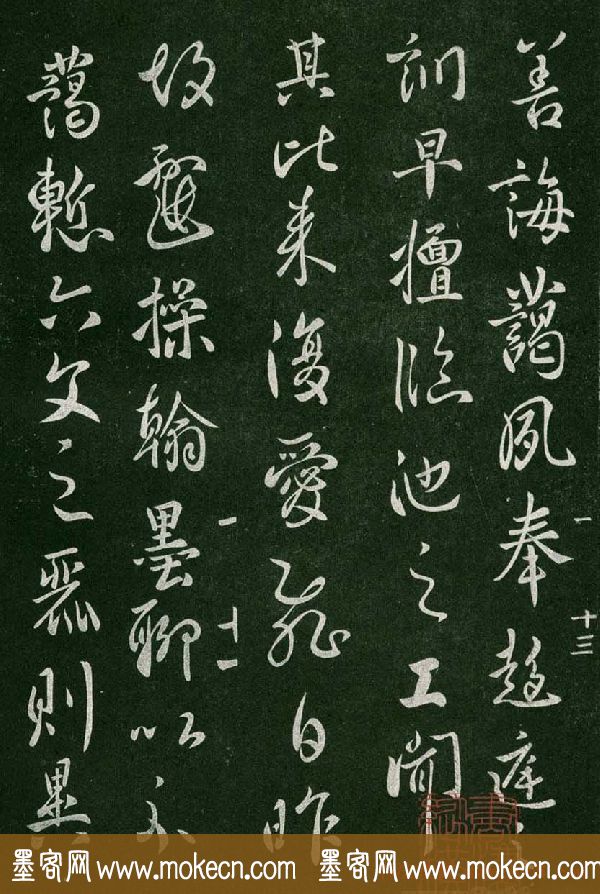 善誨藹夙奉趍庭
訓早擅臨池之工聞
其比来復愛飛白昨
故戲操翰墨聊以示
藹慙六文之麗則
一
十三
一
十一
墨客网 www.mokecn.com 墨客网 www.mokecn.com